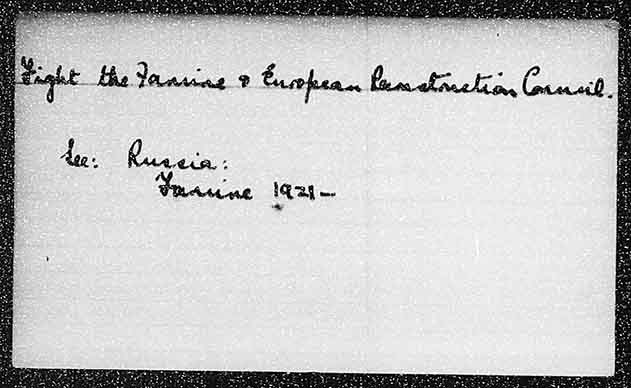 Fight the Famine & European Reconstruction Council.
See: Russia:
Famine 1921-